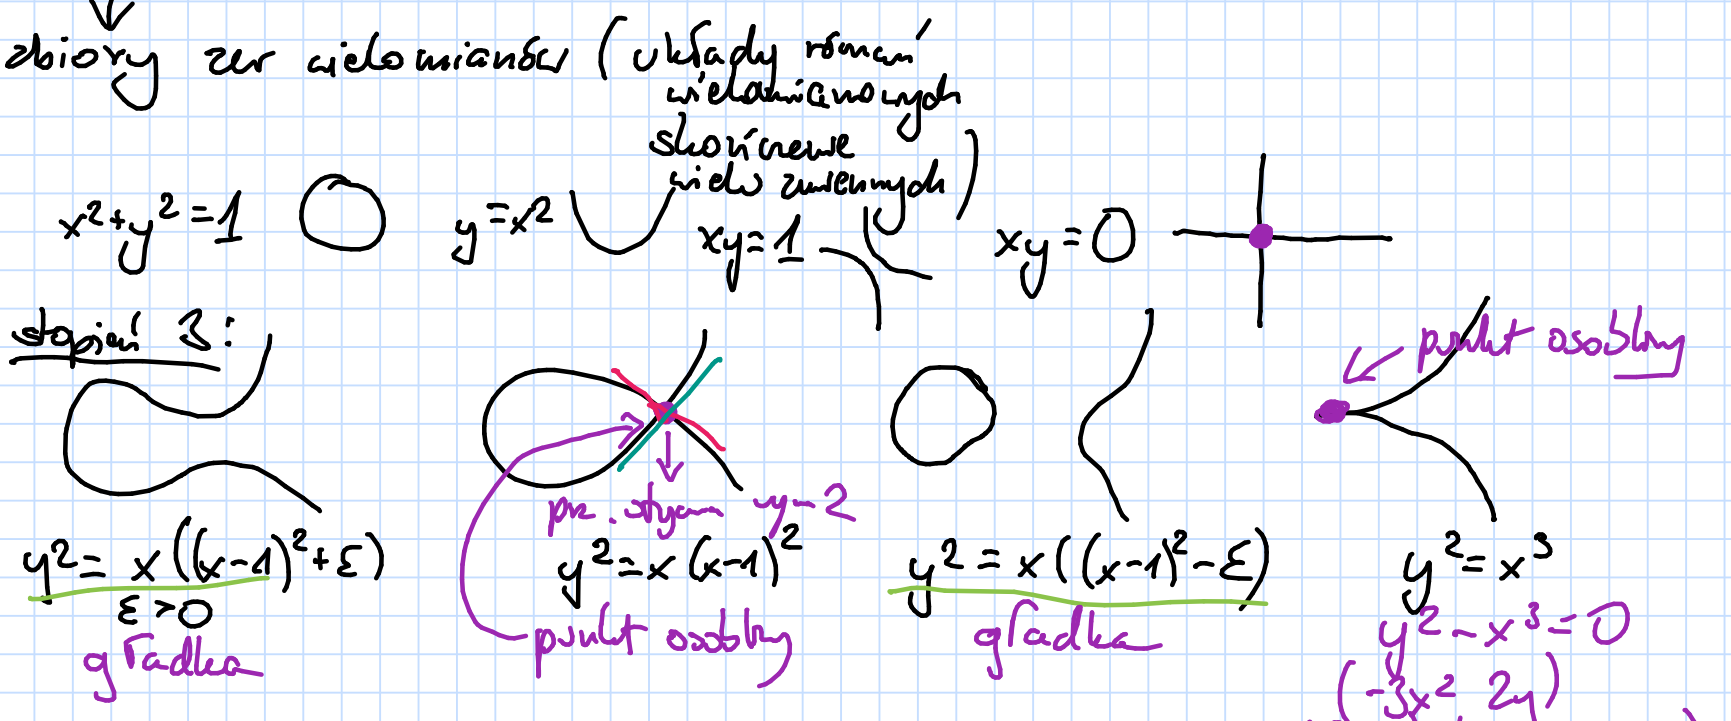 zbiory zer wielomianów (układy równań
wielomianowych
skończenie
wielu zmiennych)
x²+y²=1 y=x² xy=1 xy=0
stopień 3:
punkt osobliwy
prz. styczna wym 2
y²= x((x-1)²+ε) y²=x(x-1)² y²=x((x-1)²-ε) y²=x³
ε>0
gładka punkt osobliwy gładka y²-x³=0
(-3x², 2y)